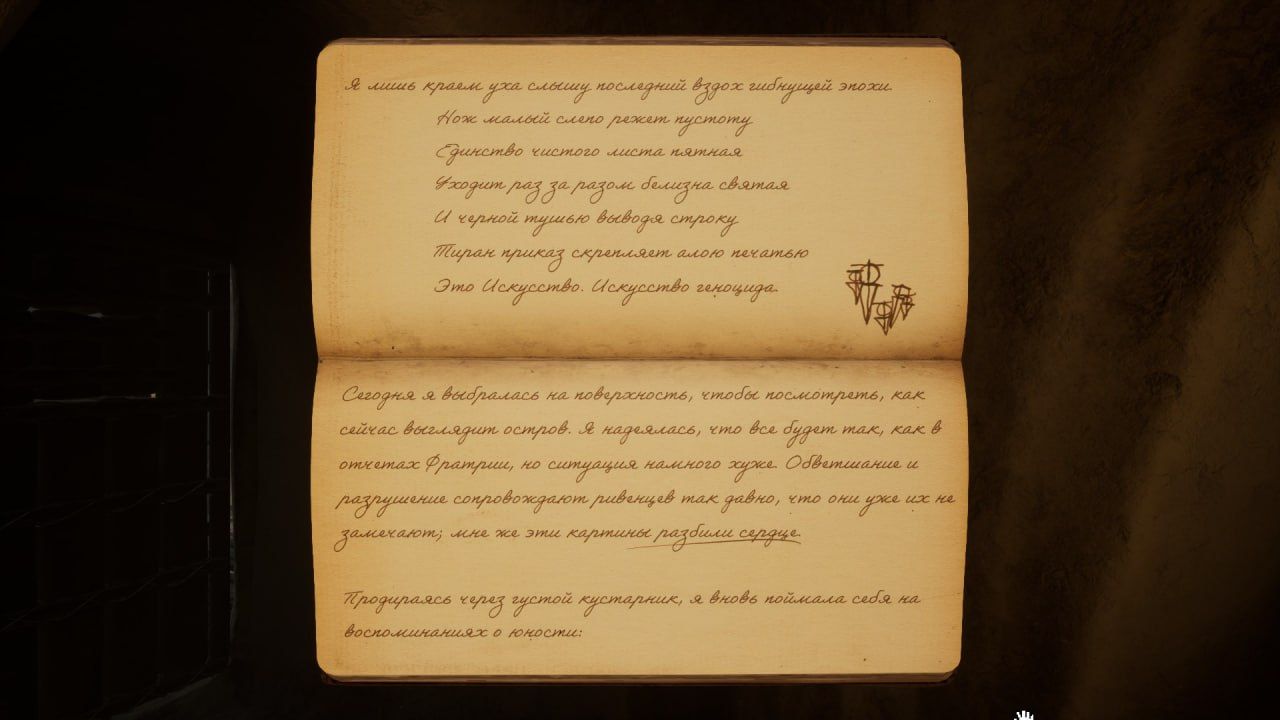 Я лишь краем уха слышу последний вздох гибнущей эпохи.
Нож малый слепо режет пустоту
Единство чистого листа пятная
Уходит раз за разом белизна святая
И черной тушью выводя строку
Тиран приказ скрепляет алою печатью
Это Искусство. Искусство геноцида.
Сегодня я выбралась на поверхность, чтобы посмотреть, как
сейчас выглядит остров. Я надеялась, что все будет так, как в
отчетах Фратрии, но ситуация намного хуже. Обветшание и
разрушение сопровождают ривенцев так давно, что они уже их не
замечают; мне же эти картины разбили сердце.
Продираясь через густой кустарник, я вновь поймала себя на
воспоминаниях о юности: